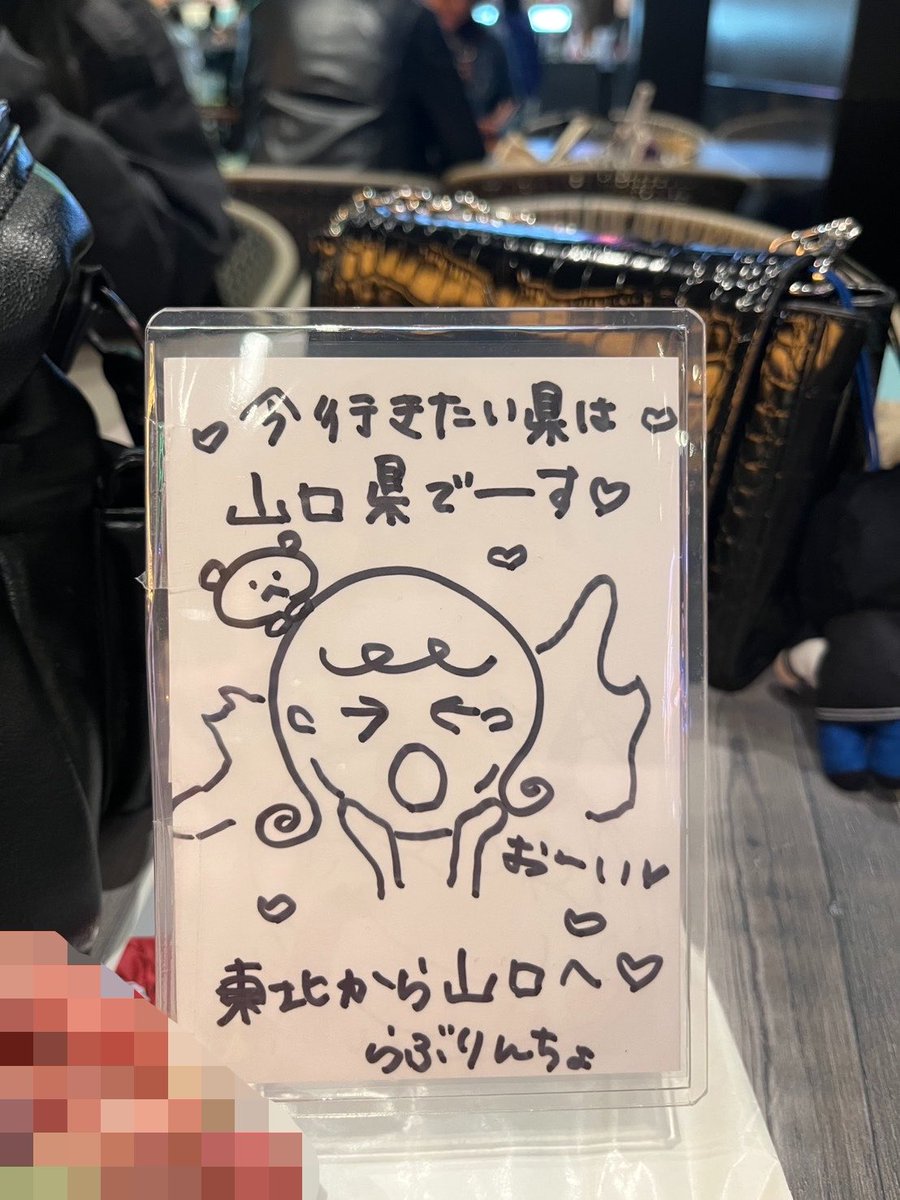 ♡今行きたい県は♡
山口県でーす♡
おーい♡
東北から山口へ♡
らぶりんちょ